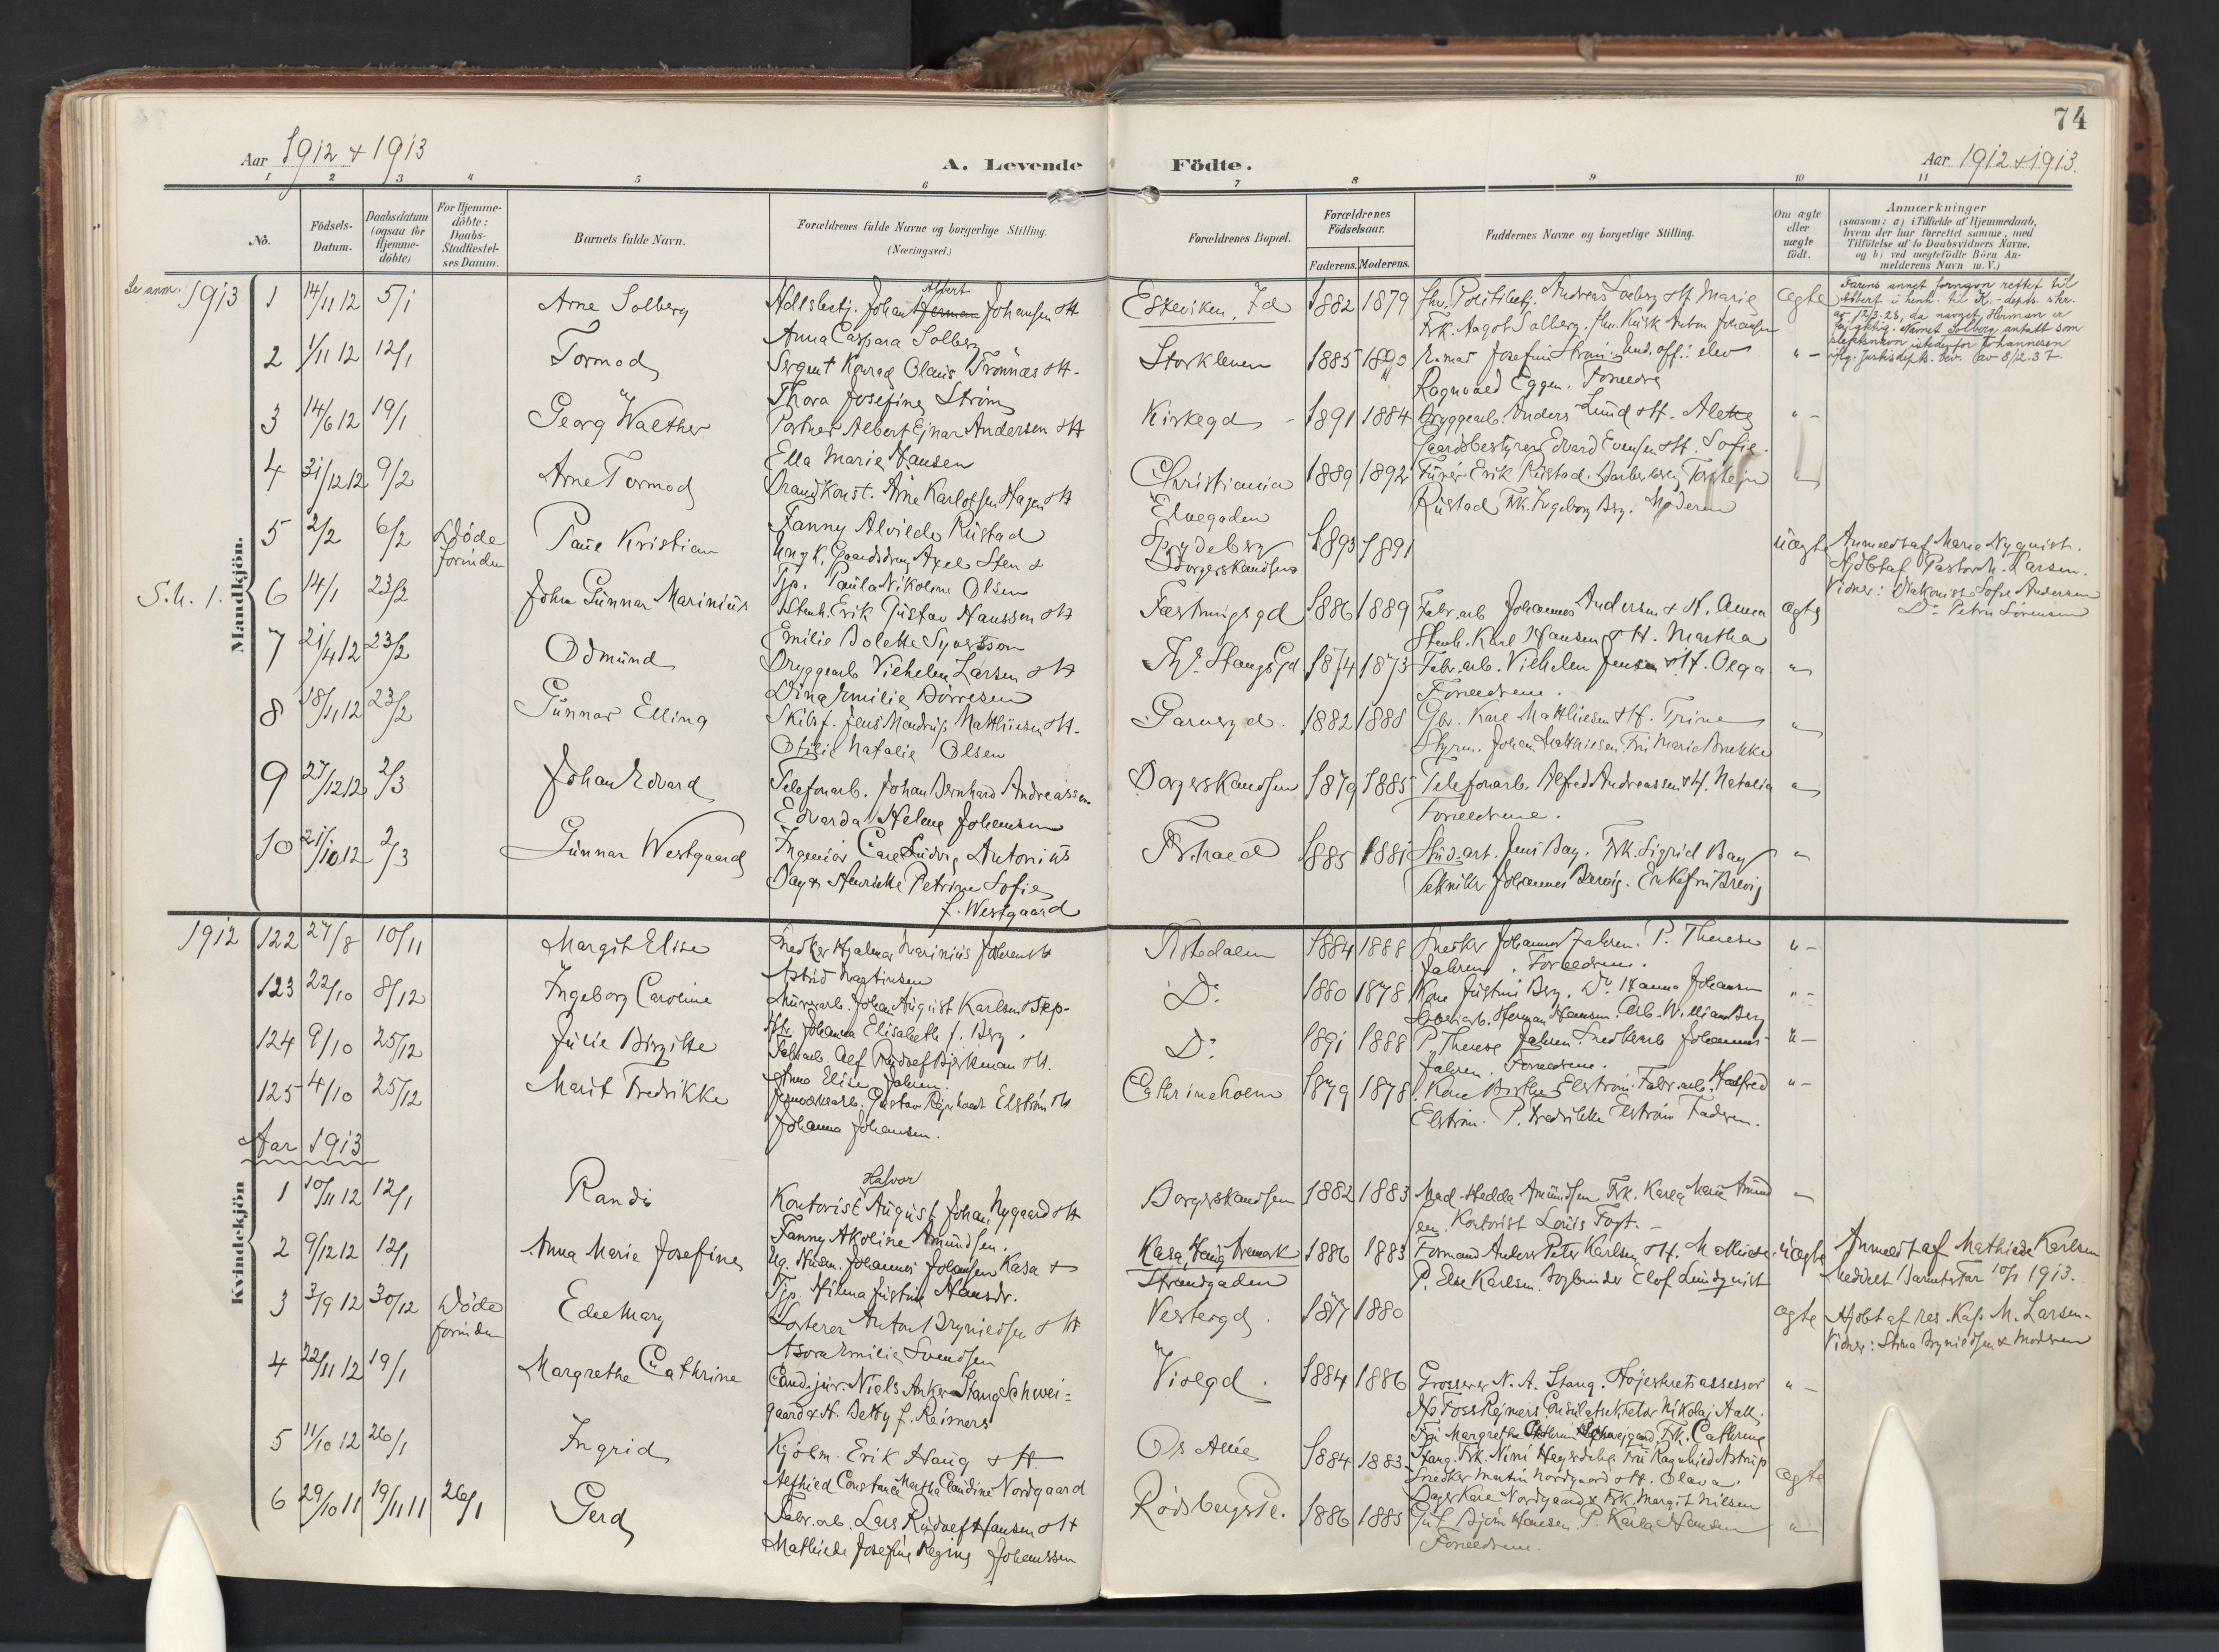 74
Aar 1912 & 1913
A. Levende Födte.
Aar 1912 & 1913.
1 2 3 4 5 6 7 8 9 10 11
No.
Födsels-
Datum.
Daabsdatum
(ogsaa for
Hjemme-
döbte)
For Hjemme-
döbte:
Daabs-
Stadfæstel-
ses Datum.
Barnets fulde Navn.
Forældrenes fulde Navne og borgerlige Stilling.
(Næringsvei.)
Forældrenes Bopæl.
Forældrenes
Födselsaar.
Faderens. Moderens.
Faddernes Navne og borgerlige Stilling.
Om ægte
eller
uægte
födt.
Anmærkninger
(saasom: a) i Tilfælde af Hjemmedaab,
hvem der har forrettet samme, med
Tilföielse af to Daabsvidners Navne,
og b) ved uægtefödte Börn An-
melderens Navn m. V.)
Mandkjön.
Se anm. 1913
1 14/11 12 5/1 Arne Solberg
Johan Albert Herman Johansen & H
Anna Caspara Solberg
Eskeviken, Id 1882 1879
Andreas Solberg & H. Marie
Frk. Aagot Solberg. Anton Johansen
ægte
Farens annet fornavn rettet til
Albert i henh. til K.-depts. skr.
av 12/3-28, da navnet Herman er
Navnet Solberg antatt som
slektsnavn istedenfor Johannesen
iflg. Justisdepts. bev. av 8/2.37.
2 1/11 12 12/1 Tormod
Sergent Konrad Olaus Trönnæs & H.
Thora Josefine Ström
Storkleven 1885 1890
Josefine Ström. Und.off. elev
Ragnvald Eggen. Forældre
" -
3 14/6 12 19/1 Georg Walther
Portner Albert Ejnar Andersen & H
Ella Marie Hansen
Kirkegd 1891 1884
Bryggearb. Anders Lund & H. Alette
Gaardsbestyrer Edvard Evensen & H. Sofie.
" -
4 31/12 12 9/2 Arne Tormod
Brandkonst. Arne Karlossen Hagen & H
Fanny Alvilde Rustad
Christiania
Elvegaden
1889 1892
Erik Rustad.
Rustad Frk. Ingeborg Berg. Moderen
"
5 2/2 6/2 Döde
forinden
Paul Kristian
Ungk. Gaardsdreng Axel Sten &
Tjp. Paula Nikoline Olsen
Spydeberg
Borgerskandsen
1893 1891
uægte
Anmeldt af Maria Nyquist.
Hjdöbt af Pastor M. Larsen.
Vidner: Diakonisse Sofie Andersen
Do Petra Sörensen
S.h. 1. 6 14/1 23/2 John Gunnar Marinius
Stenh. Erik Gustav Hanssen & H
Emilie Bolette Syversson
Fæstningsgd 1886 1889
Fabr.arb. Johannes Andersen & H. Anna
Stenh. Karl Hansen & H. Martha
ægte
7 21/4 12 23/2 Odmund
Bryggearb Vilhelm Larsen & H
Dina Emilie Börresen
Stangs Gd 1874 1873
Fabr.arb. Vilhelm Jensen & H. Olga
Forældrene.
"
8 18/11 12 23/2 Gunnar Elling
Skibsf. Jens Mandrup Matthiesen & H.
Otilie Natalie Olsen
Garverg d. 1882 1888
Karl Matthiesen & H. Trine
Styrm. Johan Matthiesen. Fru Marie Brekke
"
9 27/12 12 2/3 Johan Edvard
Telefonarb. Johan Bernhard Andreassen
Edvarda Helene Johansen
Borgerskandsen 1879 1885
Telefonarb. Alfred Andreassen & H. Natalia
Forældrene.
"
10 21/10 12 2/3 Gunnar Westgaard
Ingeniör Carl Ludvig Antonius
Bay & Henriette Petrine Sofie
f. Westgaard
Fr.hald 1885 1881
Stud. art. Jens Bay. Frk. Sigrid Bay
Tekniker Johannes Brevig. Enkefru Brevig
"
Kvindekjön
1912
122 27/8 10/11 Margit Elise
Snedker Hjalmar Marinius Jahren & H
Astrid Martinsen
Tistedalen 1884 1888
Snedker Johannes Jahren. P. Therese
Jahren. Forældrene.
" -
123 22/10 8/12 Ingeborg Caroline
Murerarb. Johan August Karlsen & Hp-
Johanna Elisabeth f. Berg.
Do 1880 1878
Kone Justine Berg. Do Hanna Johansen
Herman Hansen. Arb. William Berg
" -
124 9/10 25/12 Julie Birgitte
Fabr.arb. Alf Rudolf Björkman & H.
Anna Elise Jahren.
Do 1891 1888
P. Therese Jahren. Snedkerarb Johannes
Jahren. Forældrene.
" -
125 4/10 25/12 Marit Fredrikke
Gustav Reinhardt Elström & H
Johanna Johansen.
Cathrineholm 1879 1878
Kone Birthe Elström. Fabr.arb. Halfred
Elström. P. Fredrikke Elström Faderen.
" -
Aar 1913
1 10/11 12 12/1 Randi
Kontorist August Johan Halvor Nygaard & H
Fanny Akoline Amundsen.
Borgerskandsen 1882 1883
Mad. Hedda Amundsen Frk. Karla Marie Amund
sen. Kontorist Louis Fogt.
"
2 9/12 12 12/1 Anna Marie Josefine
Ug. Husm. Johannes Johansen Kasa &
Tjp. Hilma Justine Hansdr.
Kasa, Haug Aremark
Strandgaden
1886 1883
Formand Anders Peter Karlsen & H. Mathilde.
P. Else Karlsen. Bogbinder Elof Lundquist
uægte
Anmeldt af Mathilde Karlsen
Meddelt Barnets Far 10/1 1913.
3 3/9 12 30/12 Döde
forinden
Edel Mary
Losterer Anton Brynildsen & H
Asora Emilie Svendsen
Vestergd. 1877 1880
ægte
Hjdöbt af res. Kap. M. Larsen.
Vidner: Stina Brynildsen & Moderen
4 22/11 12 19/1 Margrethe Cathrine
Cand. jur. Niels Anker Stang Schwei-
gaard & H. Betty f. Reimers
Violgd. 1884 1886
Grosserer N. A. Stang. Höjesteretsassessor
Foss Reimers. Konsulatsekretær Nikolaj Aall.
Fru Margrethe Cathrine Schweigaard, Frk. Cathrine
Stang. Frk. Nini Fru Ragnhild Astrup
" -
5 11/10 12 26/1 Ingrid
Kjöbm. Erik Haug & H
Alfhild Constance Martha Claudine Nordgaard
Os Alle 1884 1883
Snedker Martin Nordgaard & H. Olava.
Bager Karl Nordgaard & Frk. Margit Nilsen
ægte
6 29/10 11 19/11 11 26/1 Gerd
Fabr. arb. Lars Rudolf Hansen & H
Mathilde Josefine Regine Johanssen
Rödsbergste. 1886 1885
Gut Björn Hansen. P. Karla Hansen
Forældrene.
"